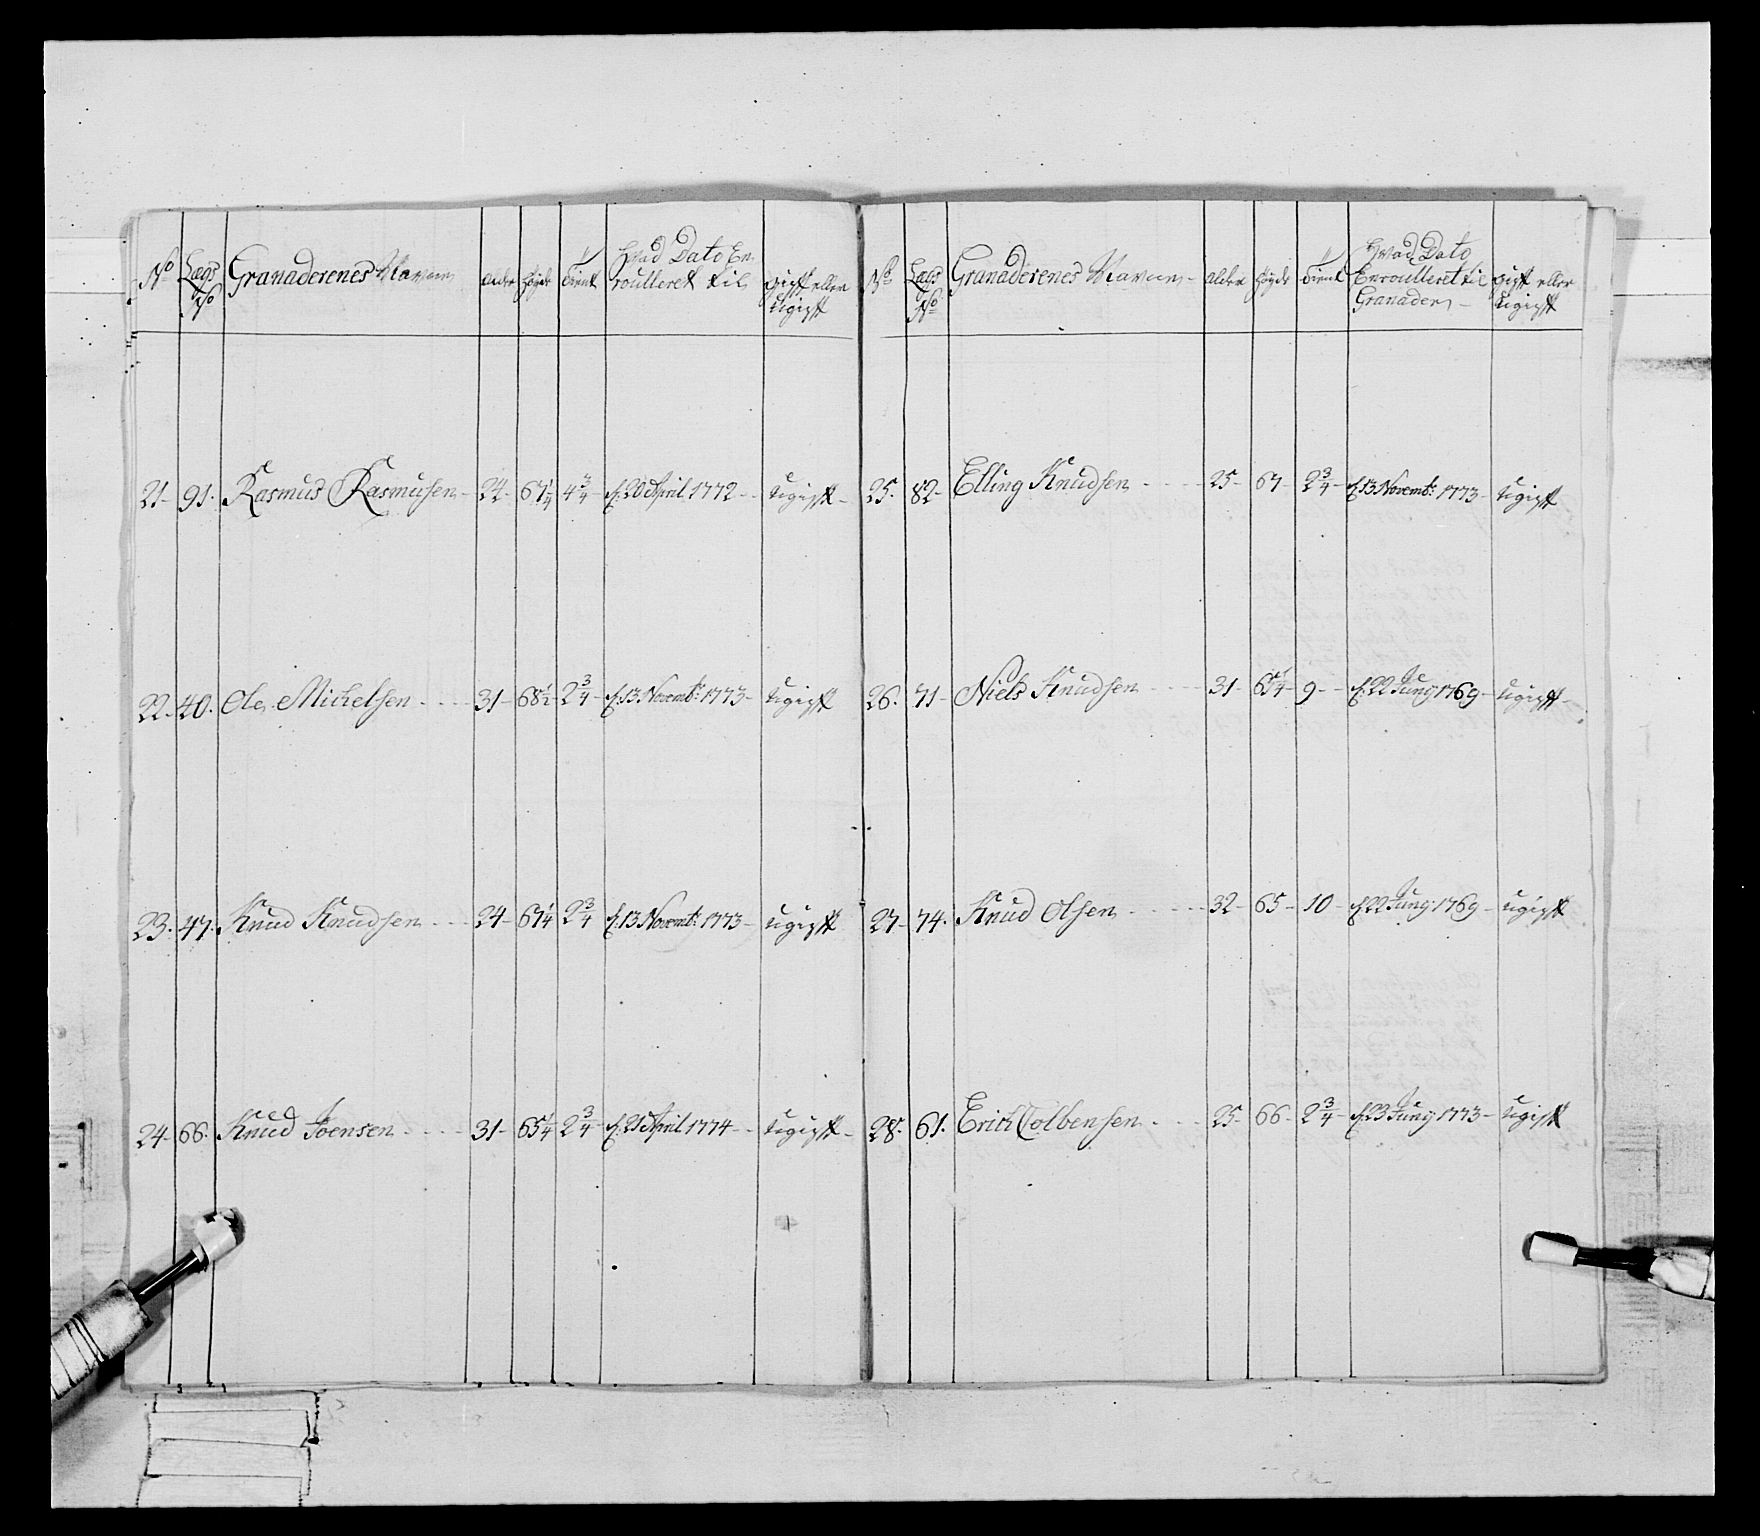 No Lægs No Granaderenes Navne alder høyde tient Hvad Dato En-
roulleret til gift eller
ugift
21- 91. Rasmus Rasmusen- 24- 67¼ 4¾ d. 20 April 1772- ugift-
22- 40. Ole Michelsen 31- 68½ 2¾- d. 13 Novembr: 1773- ugift
23. 47. Knud Knudsen 24- 67¼ 2¾ d. 13 Novembr: 1773- ugift
24- 66. Knud Joensen 31- 65¼ 2¾- d. 21 April 1774- ugift-
No Lægs No Granaderenes Navne- alder høyde tient Hvad Dato
Enroulleret til
Granader- gift eller
ugift
25. 82- Elling Knudsen 25- 67- 2¾- d. 13 Novembr: 1773- ugift
26. 71- Niels Knudsen 31- 65¼- 9- d. 22 Juny 1769- ugift-
27- 74. Knud Olsen 32- 65- 10- d. 22 Juny 1769- ugift
28. 61. Erich Colbensen 25- 66- 2¾- d. 23 Juny 1773- ugift